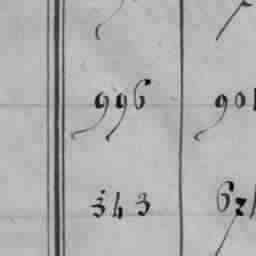 996 901
343 621